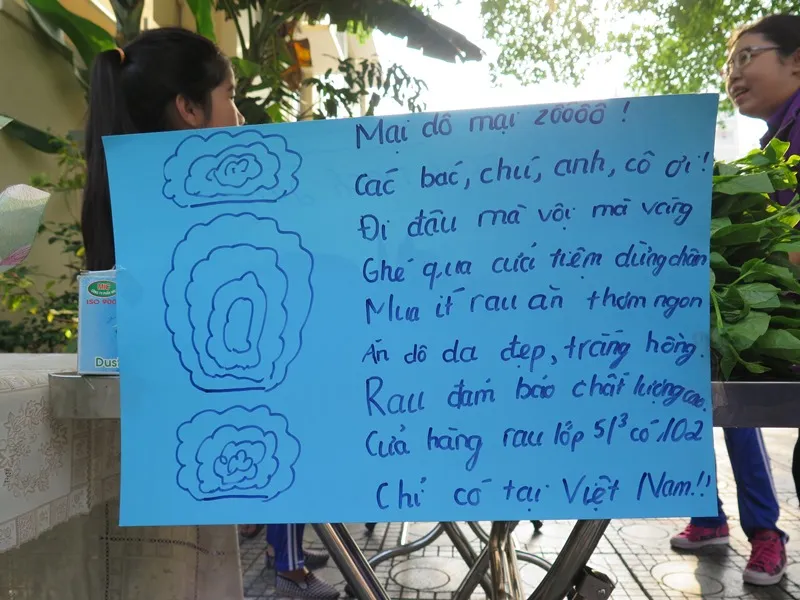 Mại dô mại zôôôô !
Các bác, chú, anh, cô ơi!
Đi đâu mà vội mà vàng
Ghé qua cửa tiệm dừng chân
Mua ít rau ăn thơm ngon
Ăn dô da đẹp, trắng hồng.
Rau đảm bảo chất lượng cao.
Cửa hàng rau lớp 5/3 có 102
Chỉ có tại Việt Nam!!
ISO 900
Dus